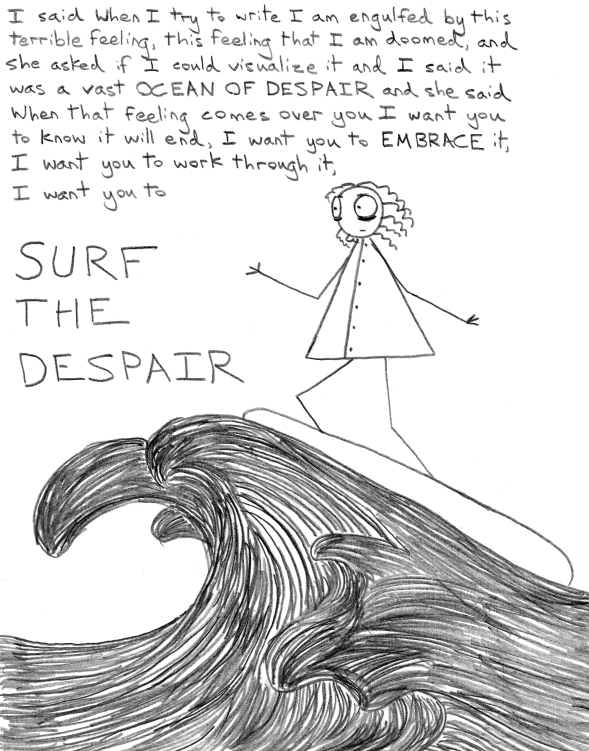 I said When I try to write I am engulfed by this
terrible feeling, this feeling that I am doomed, and
she asked if I could visualize it and I said it
was a vast OCEAN OF DESPAIR and she said
When that feeling comes over you I want you
to know it will end, I want you to EMBRACE it,
I want you to work through it,
I want you to
SURF
THE
DESPAIR